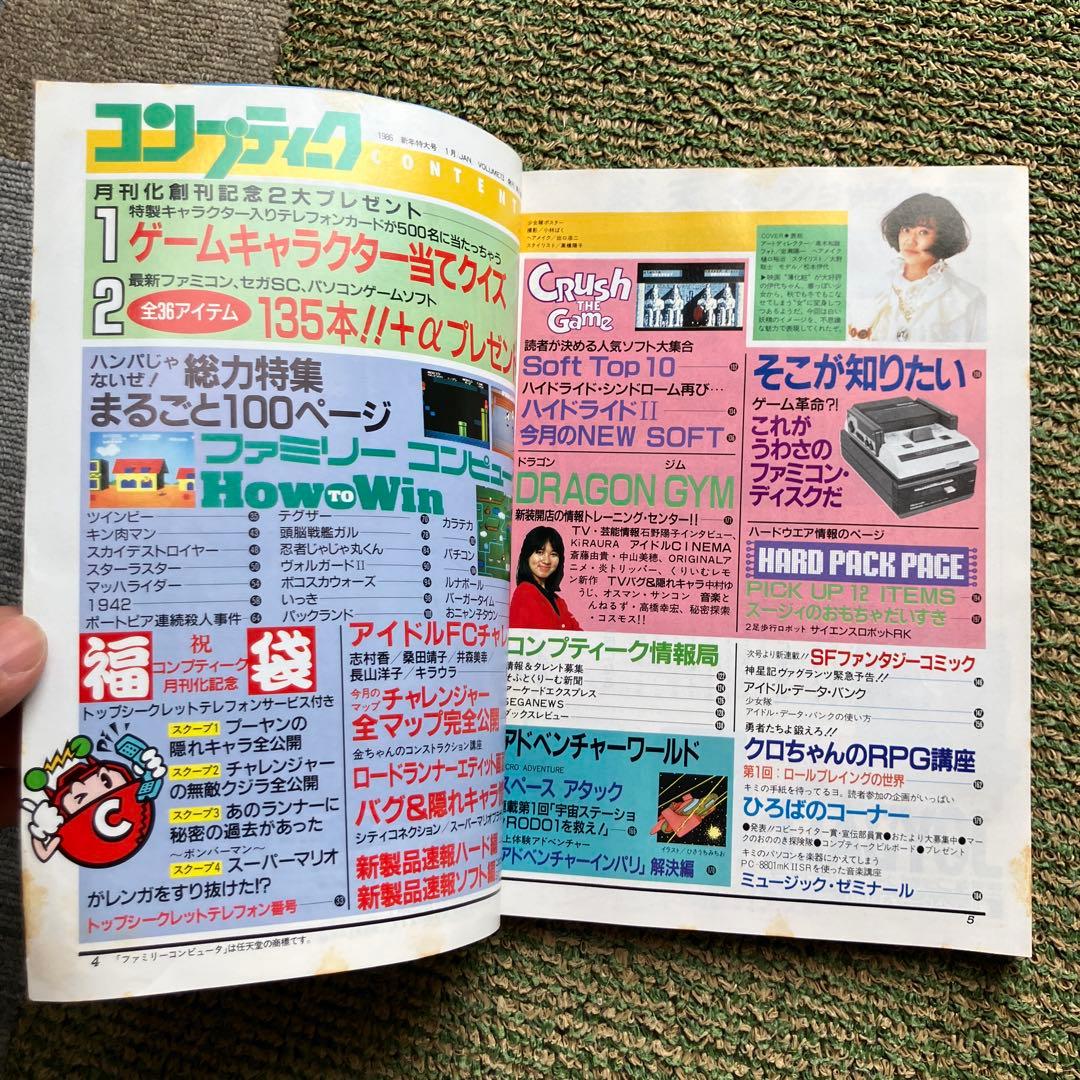 コンプティーク
1986 新年特大号 1月/JAN. VOLUME13
CONTENT
月刊化創刊記念2大プレゼント
1
特製キャラクター入りテレフォンカードが500名に当たっちゃう
ゲームキャラクター当てクイズ
2
最新ファミコン、セガSC、パソコンゲームソフト
全36アイテム
135本!!+αプレゼン
ハンパじゃ
ないぜ!
総力特集
まるごと100ページ
ファミリー コンピュー
How TO Win
ツインビー 35
キン肉マン 43
スカイデストロイヤー 48
スターラスター 50
マッハライダー 54
1942 58
ポートピア連続殺人事件 64
テグザー 70
頭脳戦艦ガル 78
忍者じゃじゃ丸くん 84
ヴォルガードII
ボコスカウォーズ
いっき
バックランド
カラテカ
パチコン
ルナボール
バーガータイム
おニャン子タウン
福
祝
コンプティーク
月刊化記念
袋
トップシークレットテレフォンサービス付き
スクープ1 プーヤンの
隠れキャラ全公開
スクープ2 チャレンジャー
の無敵クジラ全公開
スクープ3 あのランナーに
秘密の過去があった
〜ボンバーマン〜
スクープ4 スーパーマリオ
がレンガをすり抜けた!?
トップシークレットテレフォン番号 33
C
アイドルFCチャレ
志村香/桑田靖子/井森美幸
長山洋子/キララウ
今月の
マップ
チャレンジャー
全マップ完全公開
金ちゃんのコンストラクション講座
ロードランナーエディット
バグ&隠れキャラ
シティコネクション/スーパーマリオブ
新製品速報ハード編
新製品速報ソフト編
4 「ファミリーコンピュータ」は任天堂の商標です。
少女隊ポスター
撮影/小林ばく
ヘアメイク/出口浩二
スタイリスト/高橋陽子
COVER★表紙
アートディレクター/高木和雄
フォト/岩瀬陽一 ヘアメイク
樋口裕治 スタイリスト/大野
敬士 モデル/松本伊代
▶映画“薄化粧”が大好評
の伊代ちゃん。春っぽい少
女から、秋でも冬でもこな
せてしまう“女”に変身しつ
つあるようだ。今回は白い
妖精のイメージを、不思議
な魅力で表現してくれたぞ。
CRUSH
THE
Game
読者が決める人気ソフト大集合
Soft Top 10 132
ハイドライド・シンドローム再び…
ハイドライドII 134
今月のNEW SOFT 136
ドラゴン ジム
DRAGON GYM
新装開店の情報トレーニング・センター!! 171
TV・芸能情報石野陽子インタビュー、
KiRAURA アイドルCINEMA
斎藤由貴・中山美穂、ORIGINALア
ニメ・炎トリッパー、くりいむレモ
ン新作 TVバグ&隠れキャラ中村ゆ
うじ、オスマン・サンコン 音楽と
んねるず・高橋幸宏、秘密探索
・コスモス!!
そこが知りたい
ゲーム革命?!
これが
うわさの
ファミコン・
ディスクだ
ハードウエア情報のページ
HARD PACK PAGE
PICK UP 12 ITEMS 194
スージィのおもちゃだいすき 197
2足歩行ロボット サイエンスロボットRK
コンプティーク情報局
情報&タレント募集 122
そふとくりーむ新聞 124
アーケードエクスプレス 126
SEGANEWS 128
ブックスレビュー 130
次号より新連載!! SFファンタジーコミック
神星記ヴァグランツ緊急予告!!
アイドル・データ・バンク
少女隊 147
アイドル・データ・バンクの使い方
アドベンチャーワールド
CRO ADVENTURE
スペース アタック
連載第1回「宇宙ステーショ
RODO1を救え!」
上体験アドベンチャー
アドベンチャーインパリ」解決編
イラスト/ひさうちみちお
勇者たちよ鍛えろ!!
クロちゃんのRPG講座
第1回:ロールプレイングの世界
キミの手紙を待ってるヨ。読者参加の企画がいっぱい
ひろばのコーナー
●発表!!コピーライター賞・宣伝部員賞●おたより大募集中●マー
クのおののき探険隊●コンプティークビルボード●プレゼント
キミのパソコンを楽器にかえてしまう
PC-8801mKIISRを使った音楽講座
ミュージック・ゼミナール
5